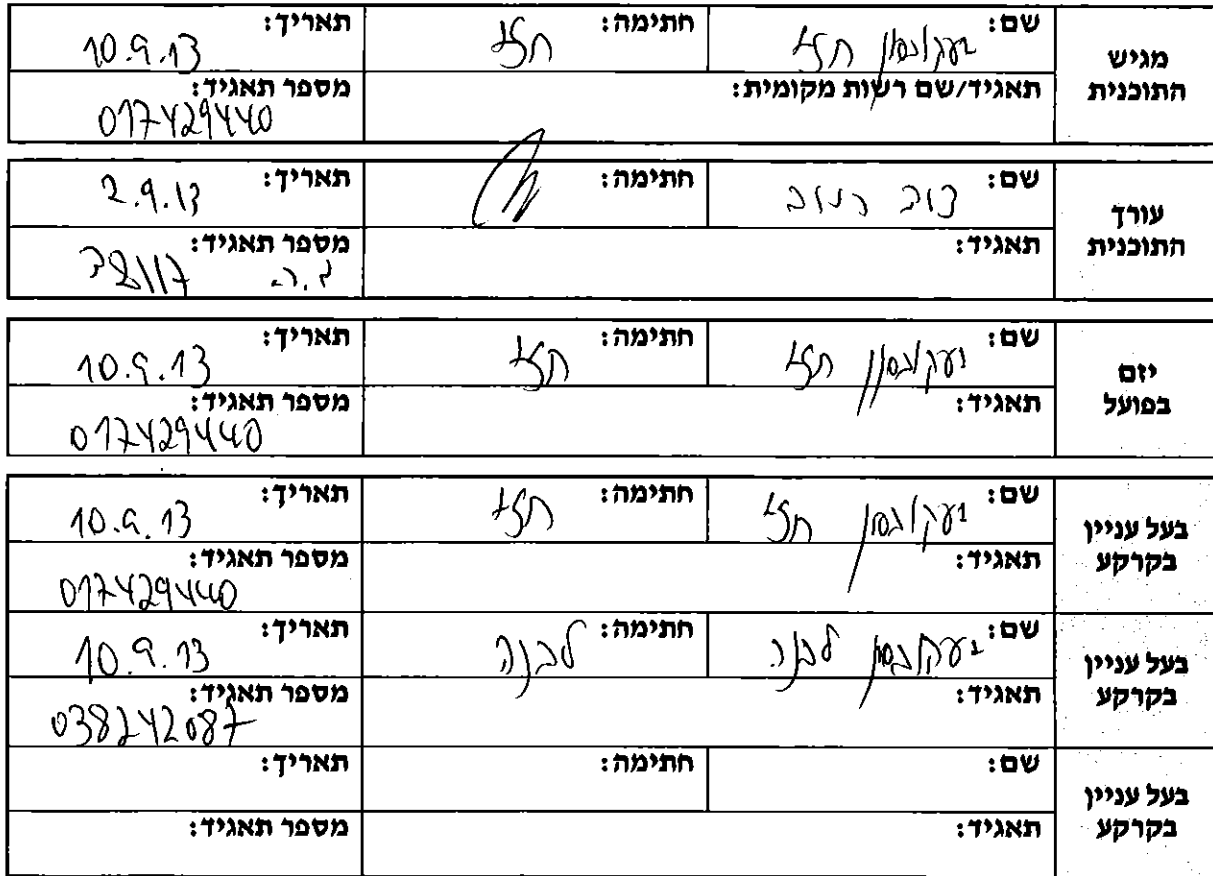 מגיש התוכנית
שם: יעקובסון
חתימה:
תאריך: 10.9.13
תאגיד/שם רשות מקומית:
מספר תאגיד: 017429440
עורך התוכנית
שם:
חתימה:
תאריך: 2.9.13
תאגיד:
מספר תאגיד: 38117
יזם בפועל
שם: יעקובסון
חתימה:
תאריך: 10.9.13
תאגיד:
מספר תאגיד: 017429440
בעל עניין בקרקע
שם: יעקובסון
חתימה:
תאריך: 10.9.13
תאגיד:
מספר תאגיד: 017429440
בעל עניין בקרקע
שם: יעקובסון לבנה
חתימה: לבנה
תאריך: 10.9.13
תאגיד:
מספר תאגיד: 038242087
בעל עניין בקרקע
שם:
חתימה:
תאריך:
תאגיד:
מספר תאגיד: